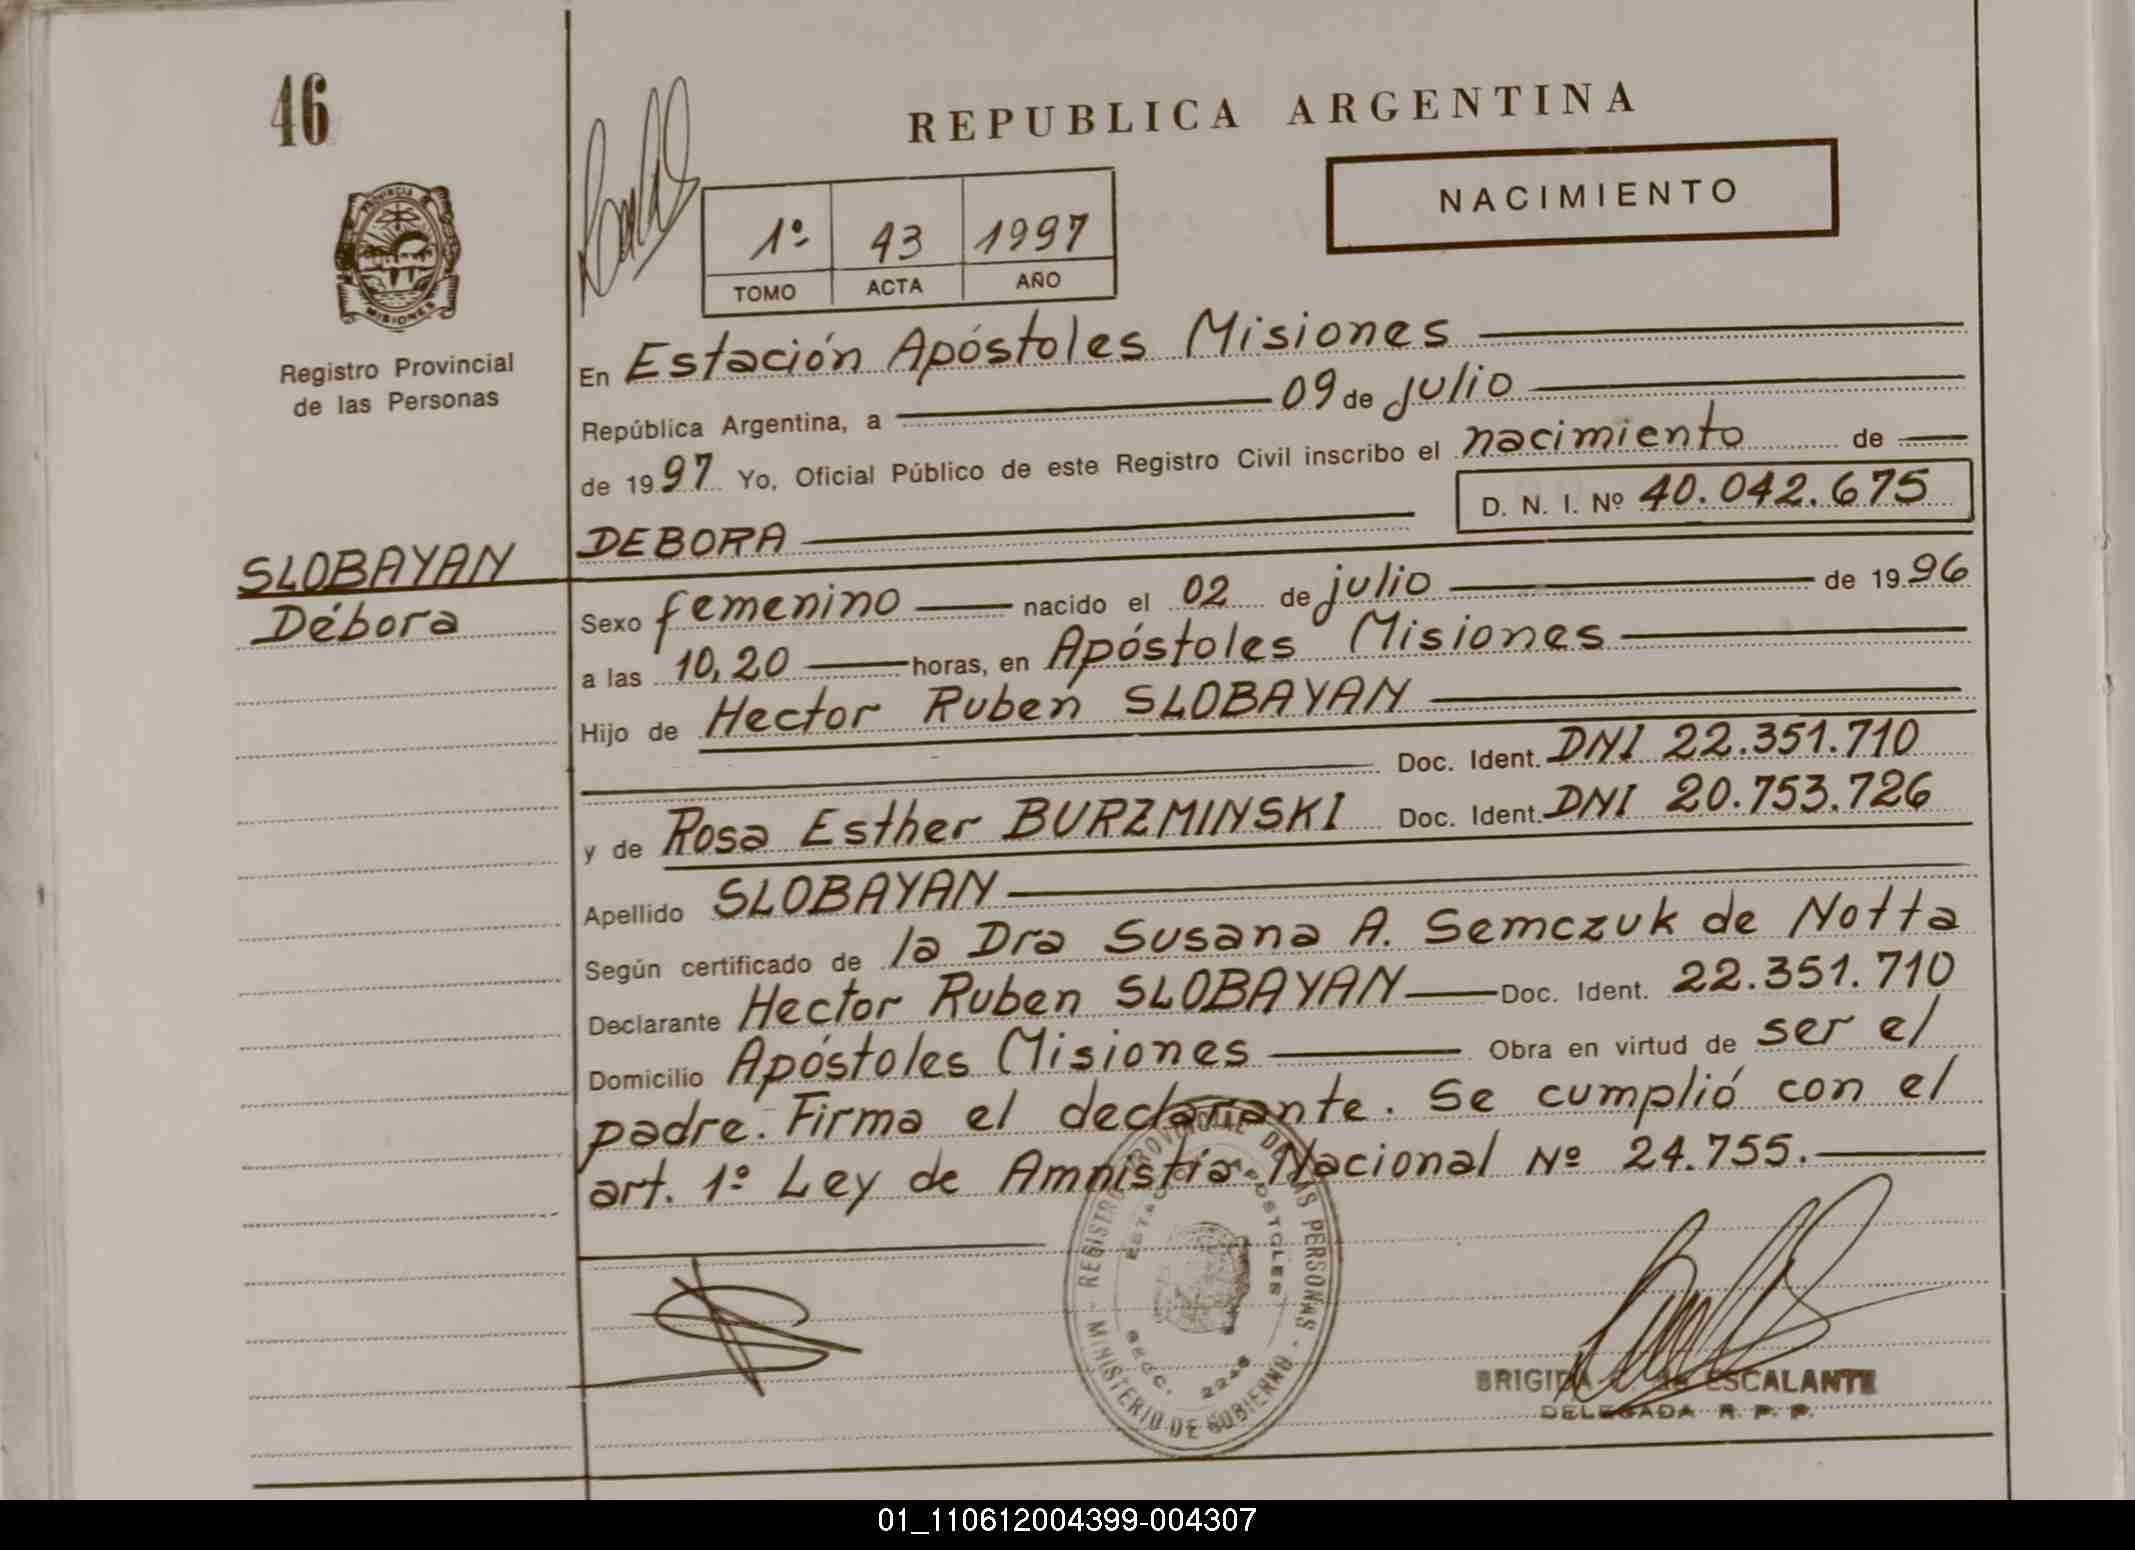 46
REPUBLICA ARGENTINA
NACIMIENTO
1º 43 1997
TOMO ACTA AÑO
PROVINCIA
MISIONES
Registro Provincial
de las Personas
En Estación Apóstoles Misiones
República Argentina, a 09 de julio
de 1997 Yo, Oficial Público de este Registro Civil inscribo el nacimiento de
D. N. I. Nº 40.042.675
DEBORA
SLOBAYAN
Débora
Sexo femenino nacido el 02 de julio de 1996
a las 10,20 horas, en Apóstoles Misiones
Hijo de Hector Ruben SLOBAYAN
Doc. Ident. DNI 22.351.710
y de Rosa Esther BURZMINSKI Doc. Ident. DNI 20.753.726
Apellido SLOBAYAN
Según certificado de la Dra Susana A. Semczuk de Notta
Declarante Hector Ruben SLOBAYAN Doc. Ident. 22.351.710
Domicilio Apóstoles Misiones Obra en virtud de ser el
padre. Firma el declarante. Se cumplió con el
art. 1º Ley de Amnistía Nacional Nº 24.755.
MINISTERIO DE GOBIERNO - REGISTRO PROVINCIAL DE LAS PERSONAS -
ESTACION APOSTOLES
SECC. 2248
BRIGIDA de ESCALANTE
DELEGADA R. P. P.
01_110612004399-004307